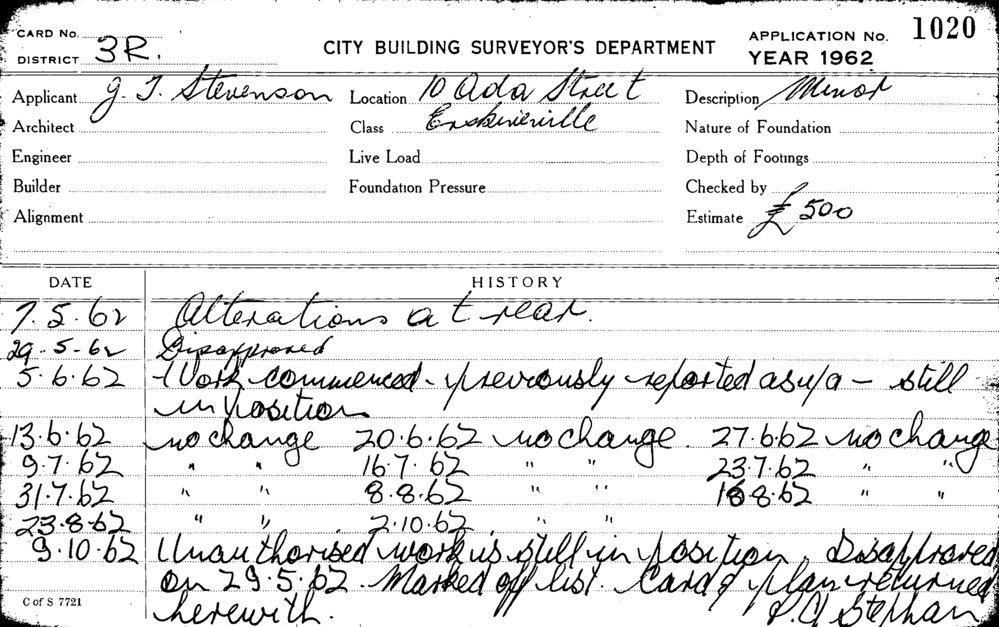 CARD No.
DISTRICT 3R.
CITY BUILDING SURVEYOR'S DEPARTMENT
APPLICATION No. 1020
YEAR 1962
Applicant J. T. Stevenson Location 10 Ada Street Description Minor
Architect Class Erskineville Nature of Foundation
Engineer Live Load Depth of Footings
Builder Foundation Pressure Checked by
Alignment Estimate £500
DATE HISTORY
7.5.62 Alterations at rear.
29-5-62 Disapproved
5.6.62 Work commenced - previously reported as u/a - still
in position
13.6.62 no change 20.6.62 no change. 27.6.62 no change
9.7.62 " " 16.7.62 " " 23.7.62 " "
31.7.62 " " 8.8.62 " " 18.8.62 " "
23.8.62 " " . 2.10.62 " "
9.10.62 Unauthorised work is still in position. Disapproved
on 29.5.62. Marked off list. Card & plan returned
herewith.
C of S 7721